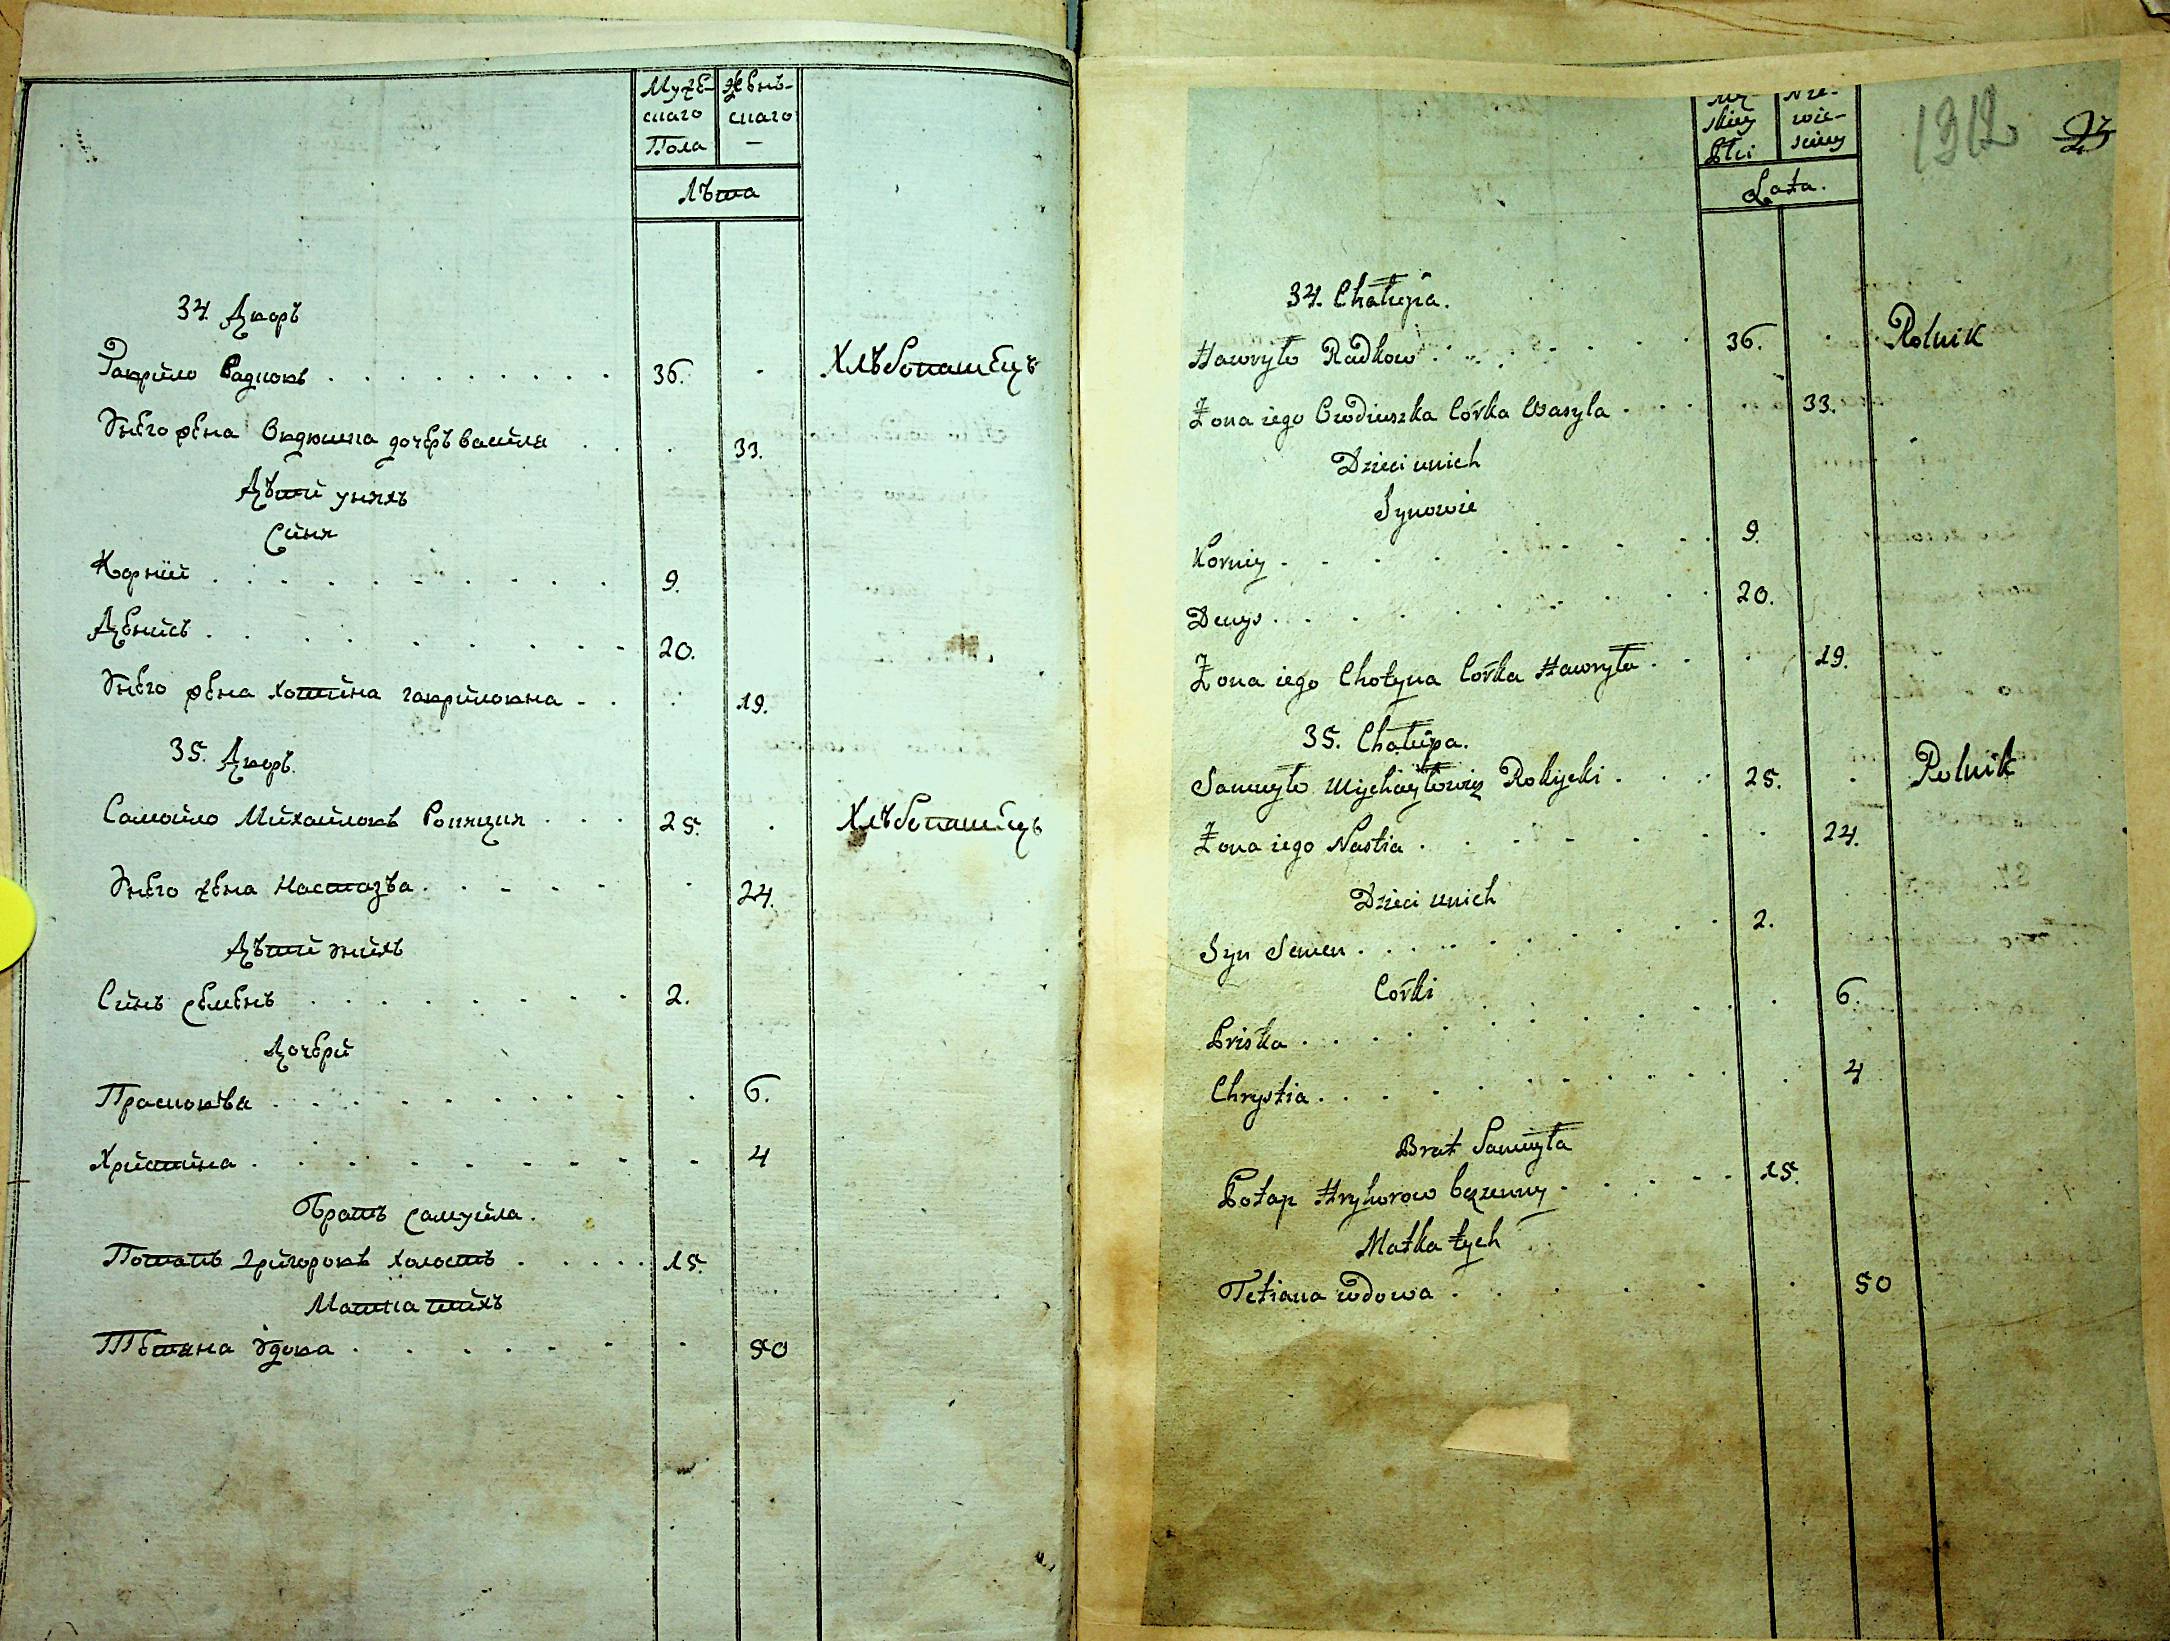 Мужε-
скаго
Пола
Жεнъ-
скаго
—
Лѣта
34. Дворъ
Гаврило Радковъ 36. Хлѣбопашεцъ
Унεго жεна Овдюшка дочεръ василя 33.
Дѣти унихъ
Синя
Корнiй 9.
Дεнисъ 20.
Унεго жεна хотина гавриловна 19.
35. Дворъ
Самойло Михайловъ Рокицки 25. Хлѣбопашεцъ
Унεго жεна Настазѣа 24.
Дѣти унихъ
Синъ сεмεнъ 2.
Дочεри
Прасковѣа 6.
Христина 4
Братъ самуила.
Потапъ григоровъ холостъ 15.
Матка тихъ
Тεтяна удова 50
Męz-
skiey
Płci
Nie-
wie-
sciey
1312
23
Lata.
34. Chałupa.
Hawryło Radkow 36. Rolnik
Żona iego Owdiuszka Córka Wasyla 33.
Dzieci unich
Synowie
Korniy 9.
Denys 20.
Żona iego Chotyna Córka Hawryła 19.
35. Chałupa.
Samuyło Mychayłowicz Rokycki 25. Rolnik
Żona iego Nastia 24.
Dzieci unich
Syn Semen 2.
Corki
Priska 6.
Chrystia 4
Brat Samuyła
Potap Hryhorow bezenny 15.
Matka tych
Tetiana wdowa 50